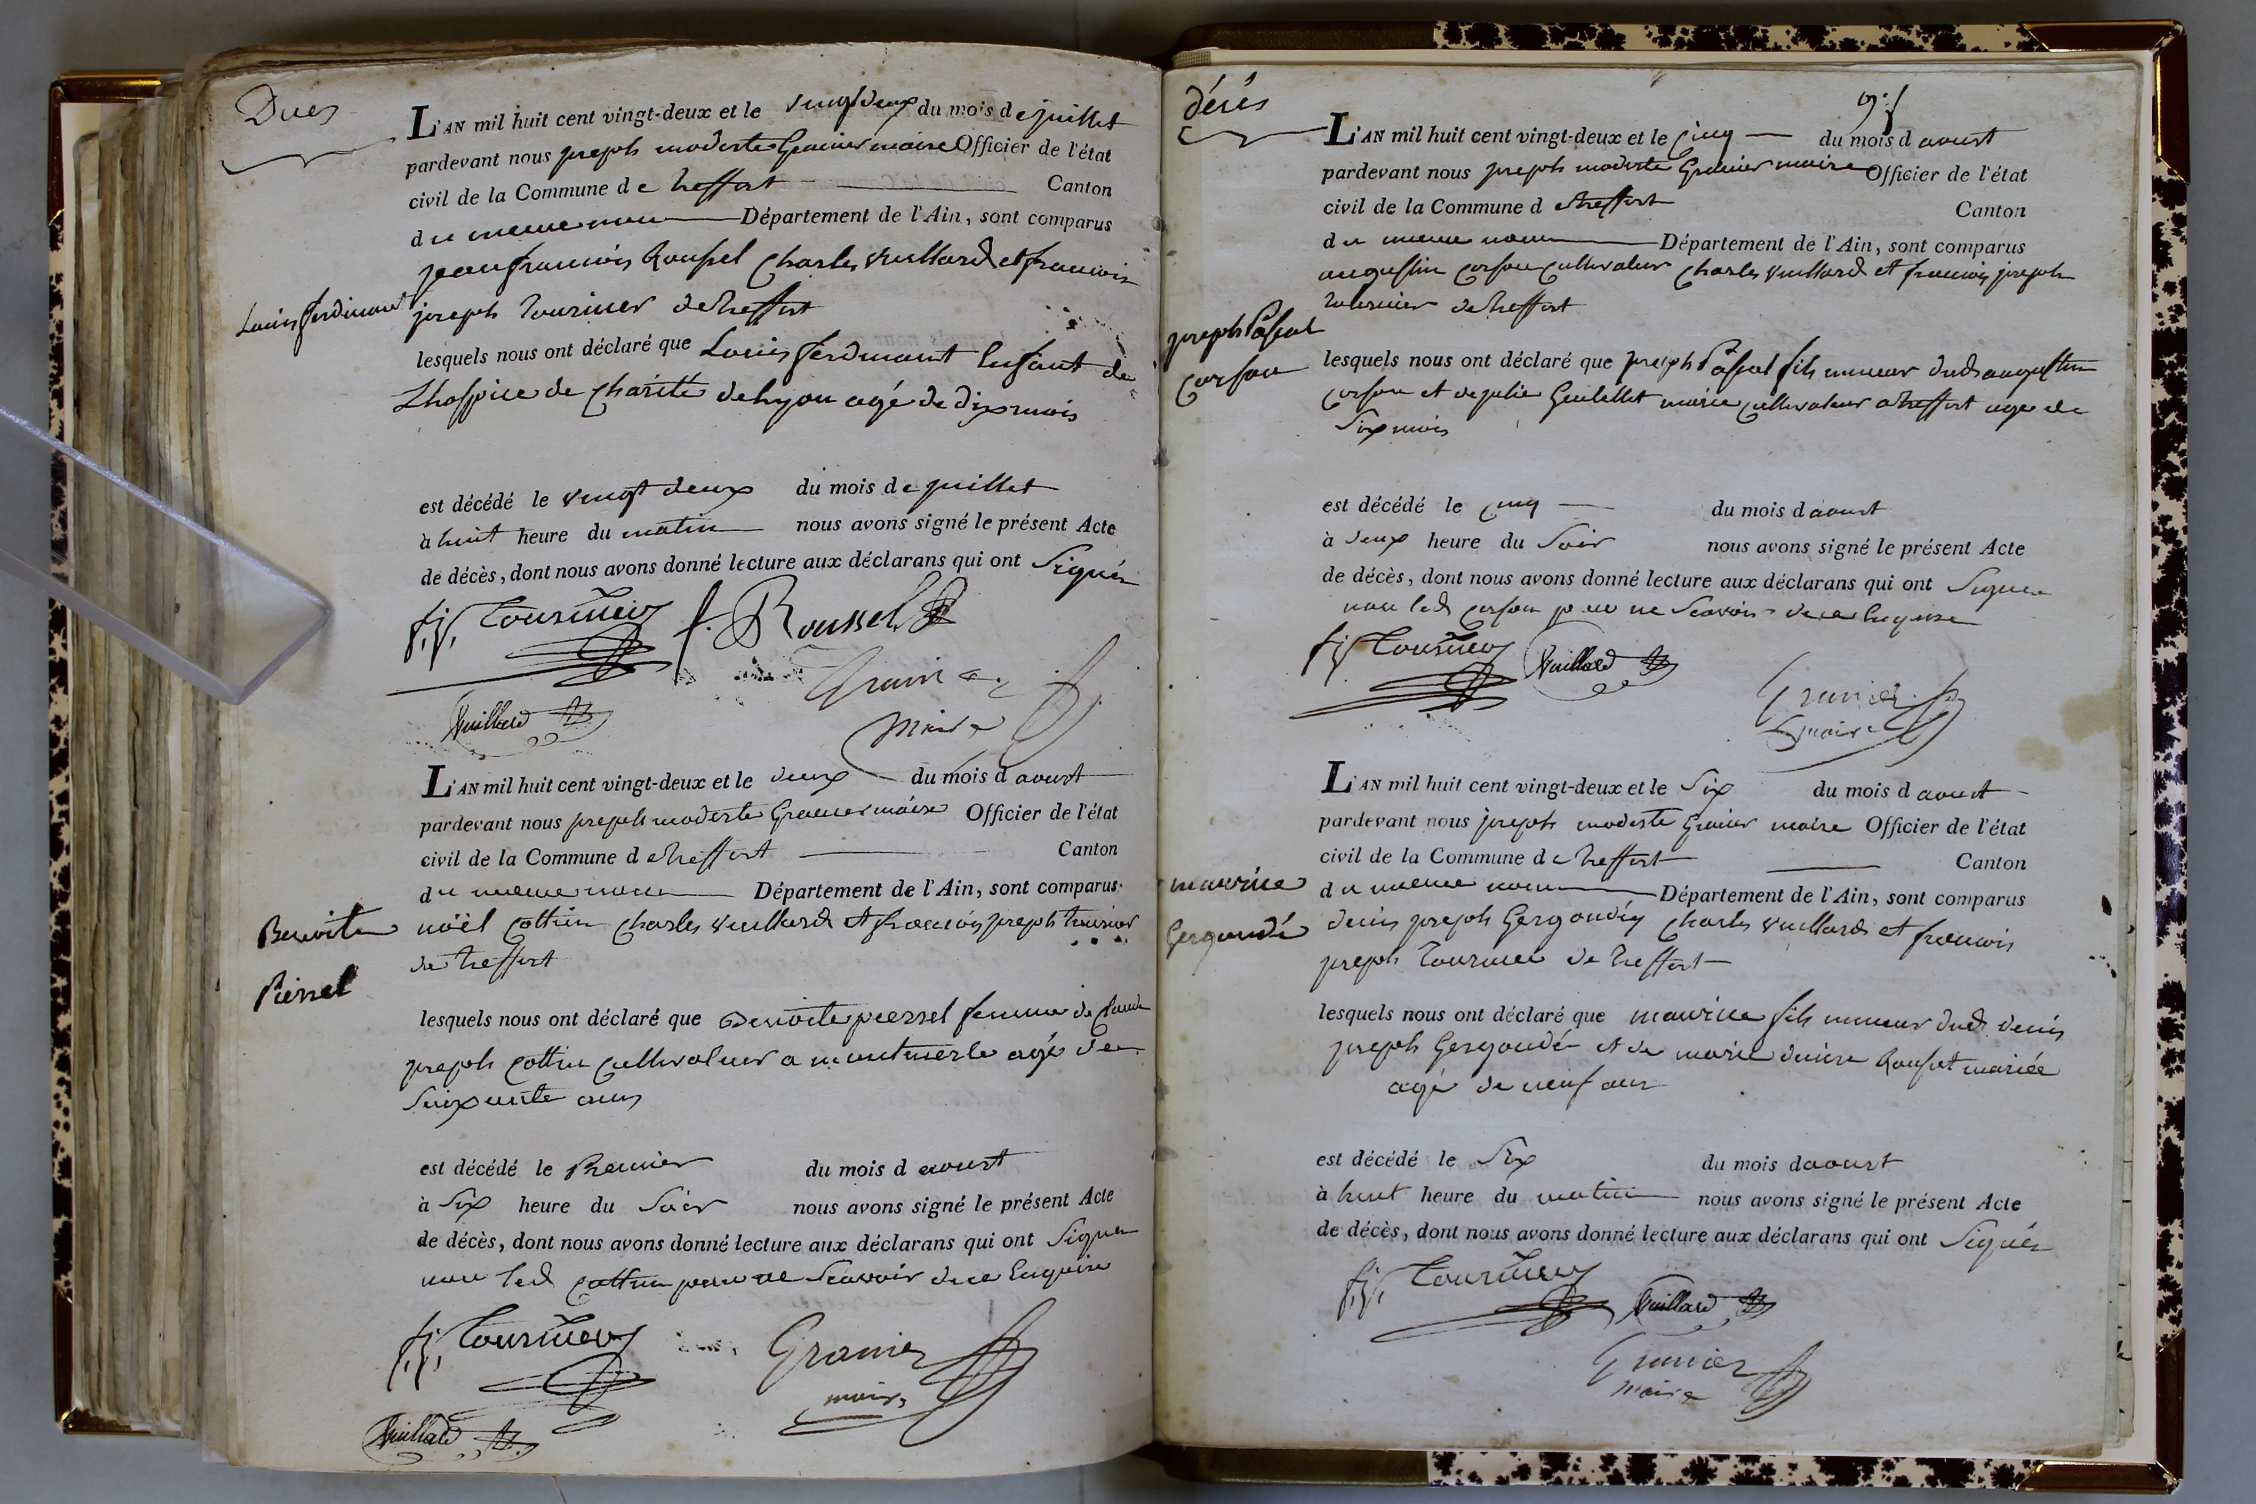 Duces
L'AN mil huit cent vingt-deux et le vingt deux du mois de juillet
pardevant nous joseph modeste Granier maire Officier de l'état
civil de la Commune de treffort Canton
du meme nom Département de l'Ain, sont comparus
jean francois Roussel Charles Vuillard et francois
joseph tournier de treffort
Louis ferdinand
lesquels nous ont déclaré que Louis ferdinant Enfant de
Lhospice de Charité de Lyon agé de dix mois
est décédé le vingt deux du mois de juillet
à huit heure du matin nous avons signé le présent Acte
de décès, dont nous avons donné lecture aux déclarans qui ont Signés
f. j. Tournier f. Roussel
Granier
Vuillard maire
L'AN mil huit cent vingt-deux et le deux du mois d aoust
pardevant nous joseph modeste Granier maire Officier de l'état
civil de la Commune de treffort Canton
du meme nom Département de l'Ain, sont comparus
noël Cottin Charles Vuillard et francois joseph tournier
de treffort
Benoite
Pierrel
lesquels nous ont déclaré que Benoite pierrel femme de Claude
joseph Cottin Cultivateur a montmerle agé de
Soixente ans
est décédé le Premier du mois d aoust
à Six heure du Soir nous avons signé le présent Acte
de décès, dont nous avons donné lecture aux déclarans qui ont Signer
non led Cottin pour ne Scavoir de ce Enquis
f. j. Tournier Granier
maire
Vuillard
décés
L'AN mil huit cent vingt-deux et le Cinq du mois d aoust
pardevant nous joseph modeste Granier maire Officier de l'état
civil de la Commune d etreffort Canton
du meme nom Département de l'Ain, sont comparus
augustin Corsou Cultivateur Charles Vuillard et francois joseph
tournier de treffort
joseph Pascal
Corsou
lesquels nous ont déclaré que joseph Pascal fils mineur dud augustin
Corsou et de julie Guilellet mariée Cultivateur a treffort age de
Six mois
est décédé le Cinq du mois d aoust
à deux heure du Soir nous avons signé le présent Acte
de décès, dont nous avons donné lecture aux déclarans qui ont Signer
non led Corsou pour ne Scavoir de ce Enquise
f. j. Tournier Vuillard
Granier
maire
L'AN mil huit cent vingt-deux et le Six du mois d aoust
pardevant nous joseph modeste Granier maire Officier de l'état
civil de la Commune de treffort Canton
du meme nom Département de l'Ain, sont comparus
denis joseph Gergondéy Charles Vuillard et francois
joseph Tournier de treffort
maurice
Gergondé
lesquels nous ont déclaré que maurice fils mineur dud denis
joseph Gergondé et de marie denise Rousset mariée
agé de neuf ans
est décédé le Six du mois d aoust
à huit heure du matin nous avons signé le présent Acte
de décès, dont nous avons donné lecture aux déclarans qui ont Signés
f. j. Tournier Vuillard
Granier
maire